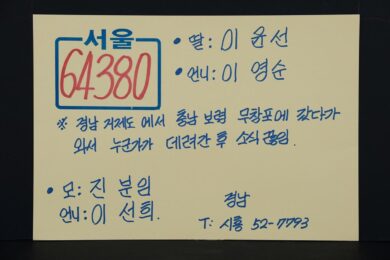 서울
64380
• 딸: 이 윤선
• 언니: 이 영순
※ 경남 거제도에서 충남 보령 무창포에 갔다가
와서 누군가가 데려간 후 소식 끊임.
• 모: 진 분임
언니: 이 선희.
경남
T: 시흥 52-7793